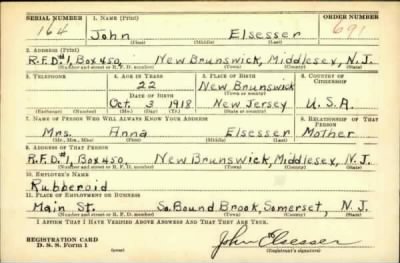 SERIAL NUMBER 1. NAME (Print) ORDER NUMBER
164 John Elsesser 691
(First) (Middle) (Last)
2. ADDRESS (Print)
R.F.D#1, Box 450, New Brunswick, Middlesex, N.J.
(Number and street or R. F. D. number) (Town) (County) (State)
3. TELEPHONE 4. AGE IN YEARS 5. PLACE OF BIRTH 6. COUNTRY OF CITIZENSHIP
22 New Brunswick
DATE OF BIRTH (Town or county)
Oct. 3 1918 New Jersey U.S.A.
(Exchange) (Number) (Mo.) (Day) (Yr.) (State or country)
7. NAME OF PERSON WHO WILL ALWAYS KNOW YOUR ADDRESS 8. RELATIONSHIP OF THAT PERSON
Mrs. Anna Elsesser Mother
(Mr., Mrs., Miss) (First) (Middle) (Last)
9. ADDRESS OF THAT PERSON
R.F.D.#1, Box 450, New Brunswick, Middlesex, N.J.
(Number and street or R. F. D. number) (Town) (County) (State)
10. EMPLOYER'S NAME
Rubberoid
11. PLACE OF EMPLOYMENT OR BUSINESS
Main St. So. Bound Brook, Somerset, N.J.
(Number and street or R. F. D. number) (Town) (County) (State)
I AFFIRM THAT I HAVE VERIFIED ABOVE ANSWERS AND THAT THEY ARE TRUE.
REGISTRATION CARD
D. S. S. Form 1
John Elsesser
(Registrant's signature)